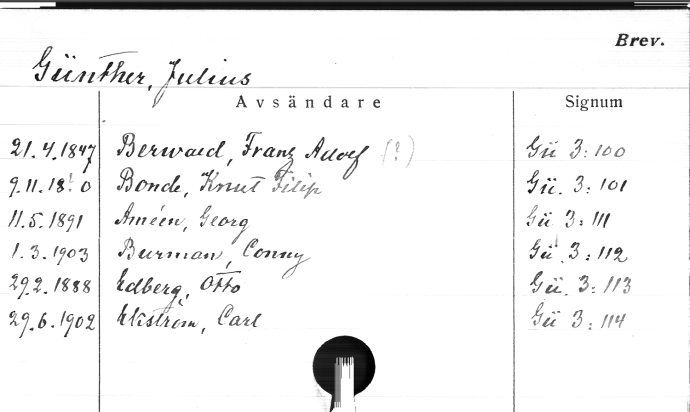 Brev.
Günther, Julius
Avsändare Signum
21.4.1847 Berwald, Franz Adolf (?) Gü 3:100
Bonde, Knut Filip Gü. 3:101
11.5.1891 Améen, Georg Gü 3:111
1.3.1903 Burman, Conny Gü. 3:112
29.2.1888 Edberg, Otto Gü. 3:113
29.6.1902 Ekström, Carl Gü 3:114